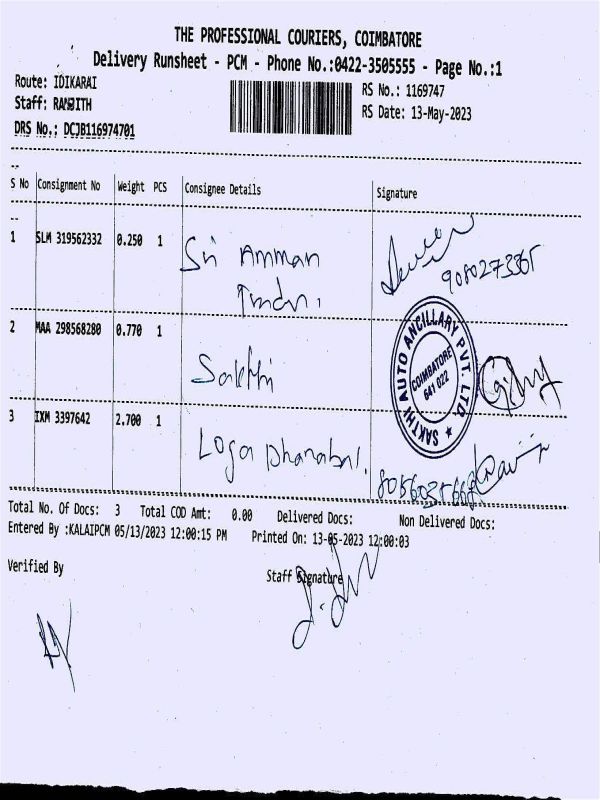 THE PROFESSIONAL COURIERS, COIMBATORE
Delivery Runsheet - PCM - Phone No.:0422-3505555 - Page No.:1
Route: IDIKARAI
RS No.: 1169747
Staff: RANJITH
RS Date: 13-May-2023
DRS No.: DCJB116974701
S No Consignment No Weight PCS Consignee Details Signature
1 SLM 319562332 0.250 1 Sri Amman
9080273365
2 MAA 298568280 0.770 1 Sakthi
SAKTHI AUTO ANCILLARY PVT. LTD. ★
COIMBATORE
641 022
3 IXM 3397642 2.700 1 Loga Dhanabal.
Total No. Of Docs: 3 Total COD Amt: 0.00 Delivered Docs: Non Delivered Docs:
Entered By :KALAIPCM 05/13/2023 12:00:15 PM Printed On: 13-05-2023 12:00:03
Verified By
Staff Signature